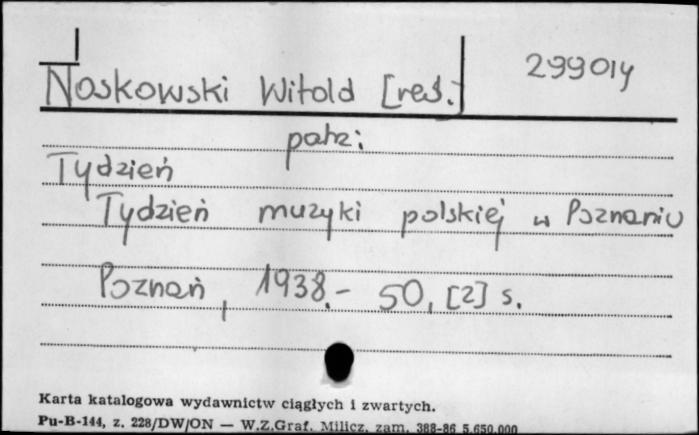 Noskowski Witold [red.] 299014
patrz:
Tydzień
Tydzień muzyki polskiej w Poznaniu
Poznań, 1938.- 50, [2] s.
Karta katalogowa wydawnictw ciągłych i zwartych.
Pu-B-144, z. 228/DW/ON — W.Z.Graf. Milicz, zam. 388-86 5.650.000